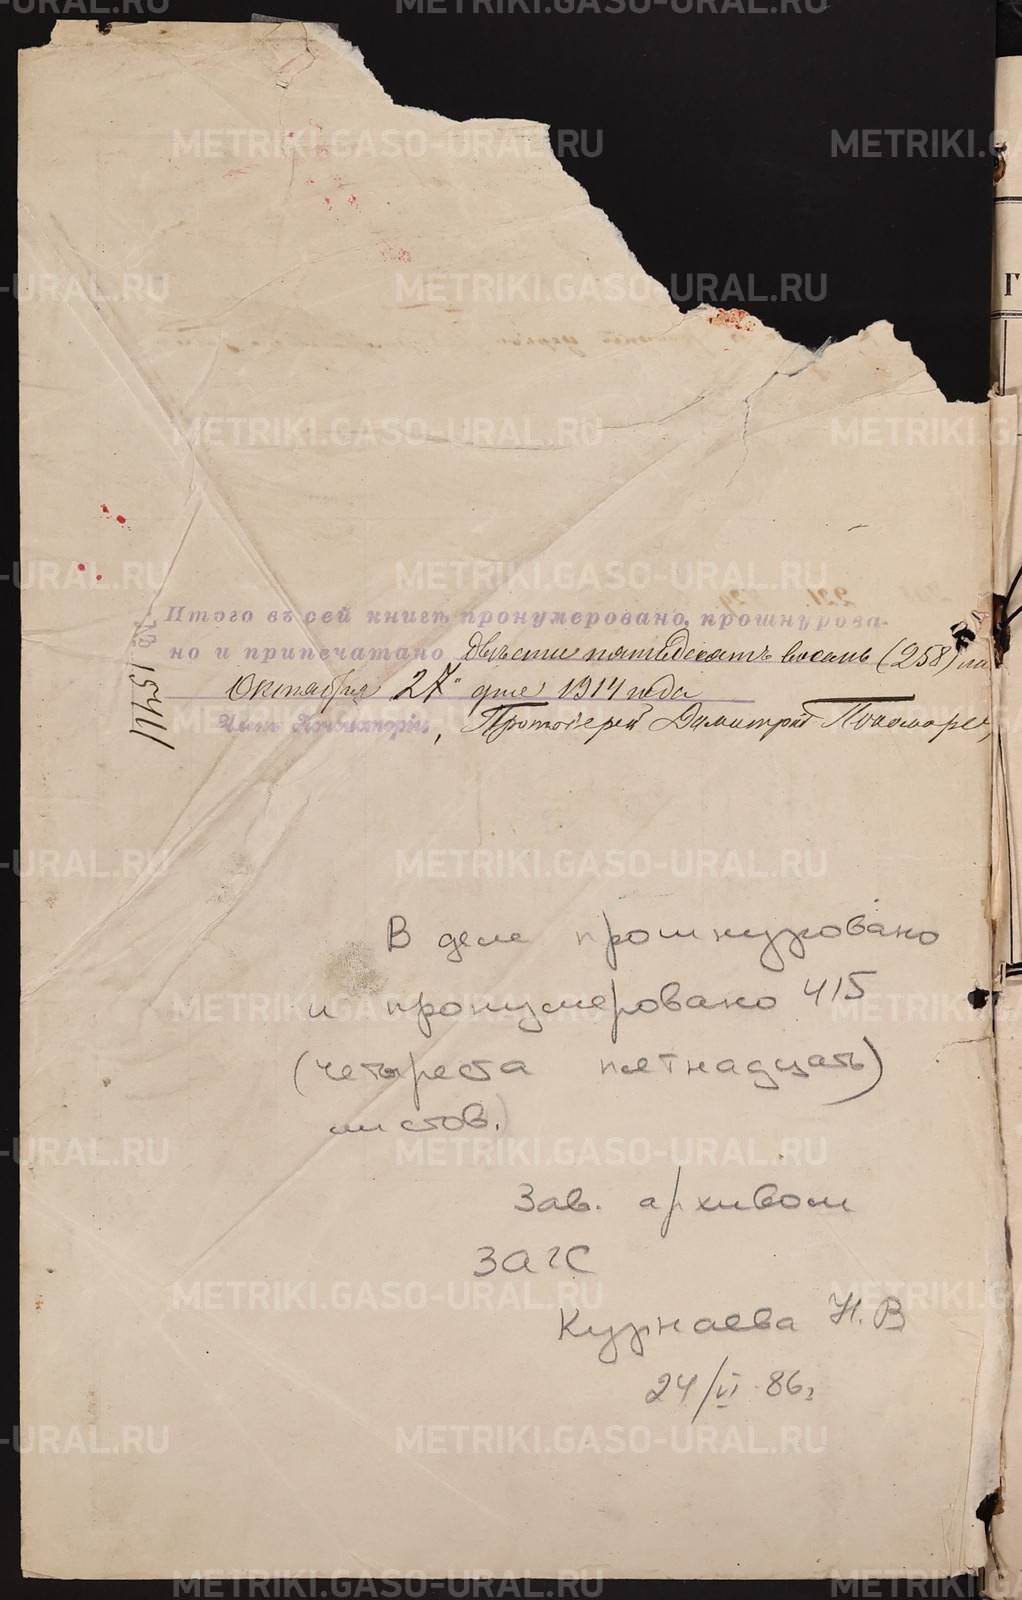 Итого въ сей книгѣ пронумеровано, прошнурова-
но и припечатано двѣсти пятьдесятъ восемь (258) ли
Октября 27" дня 1914 года
Членъ Консисторіи, Протоіерей Димитрій Пономаре
№ 15411
В деле прошнуровано
и пронумеровано 415
(четыреста пятнадцать)
листов.)
Зав. архивом
ЗАГС
Курнаева Н.В
24/VI 86г
METRIKI.GASO-URAL.RU